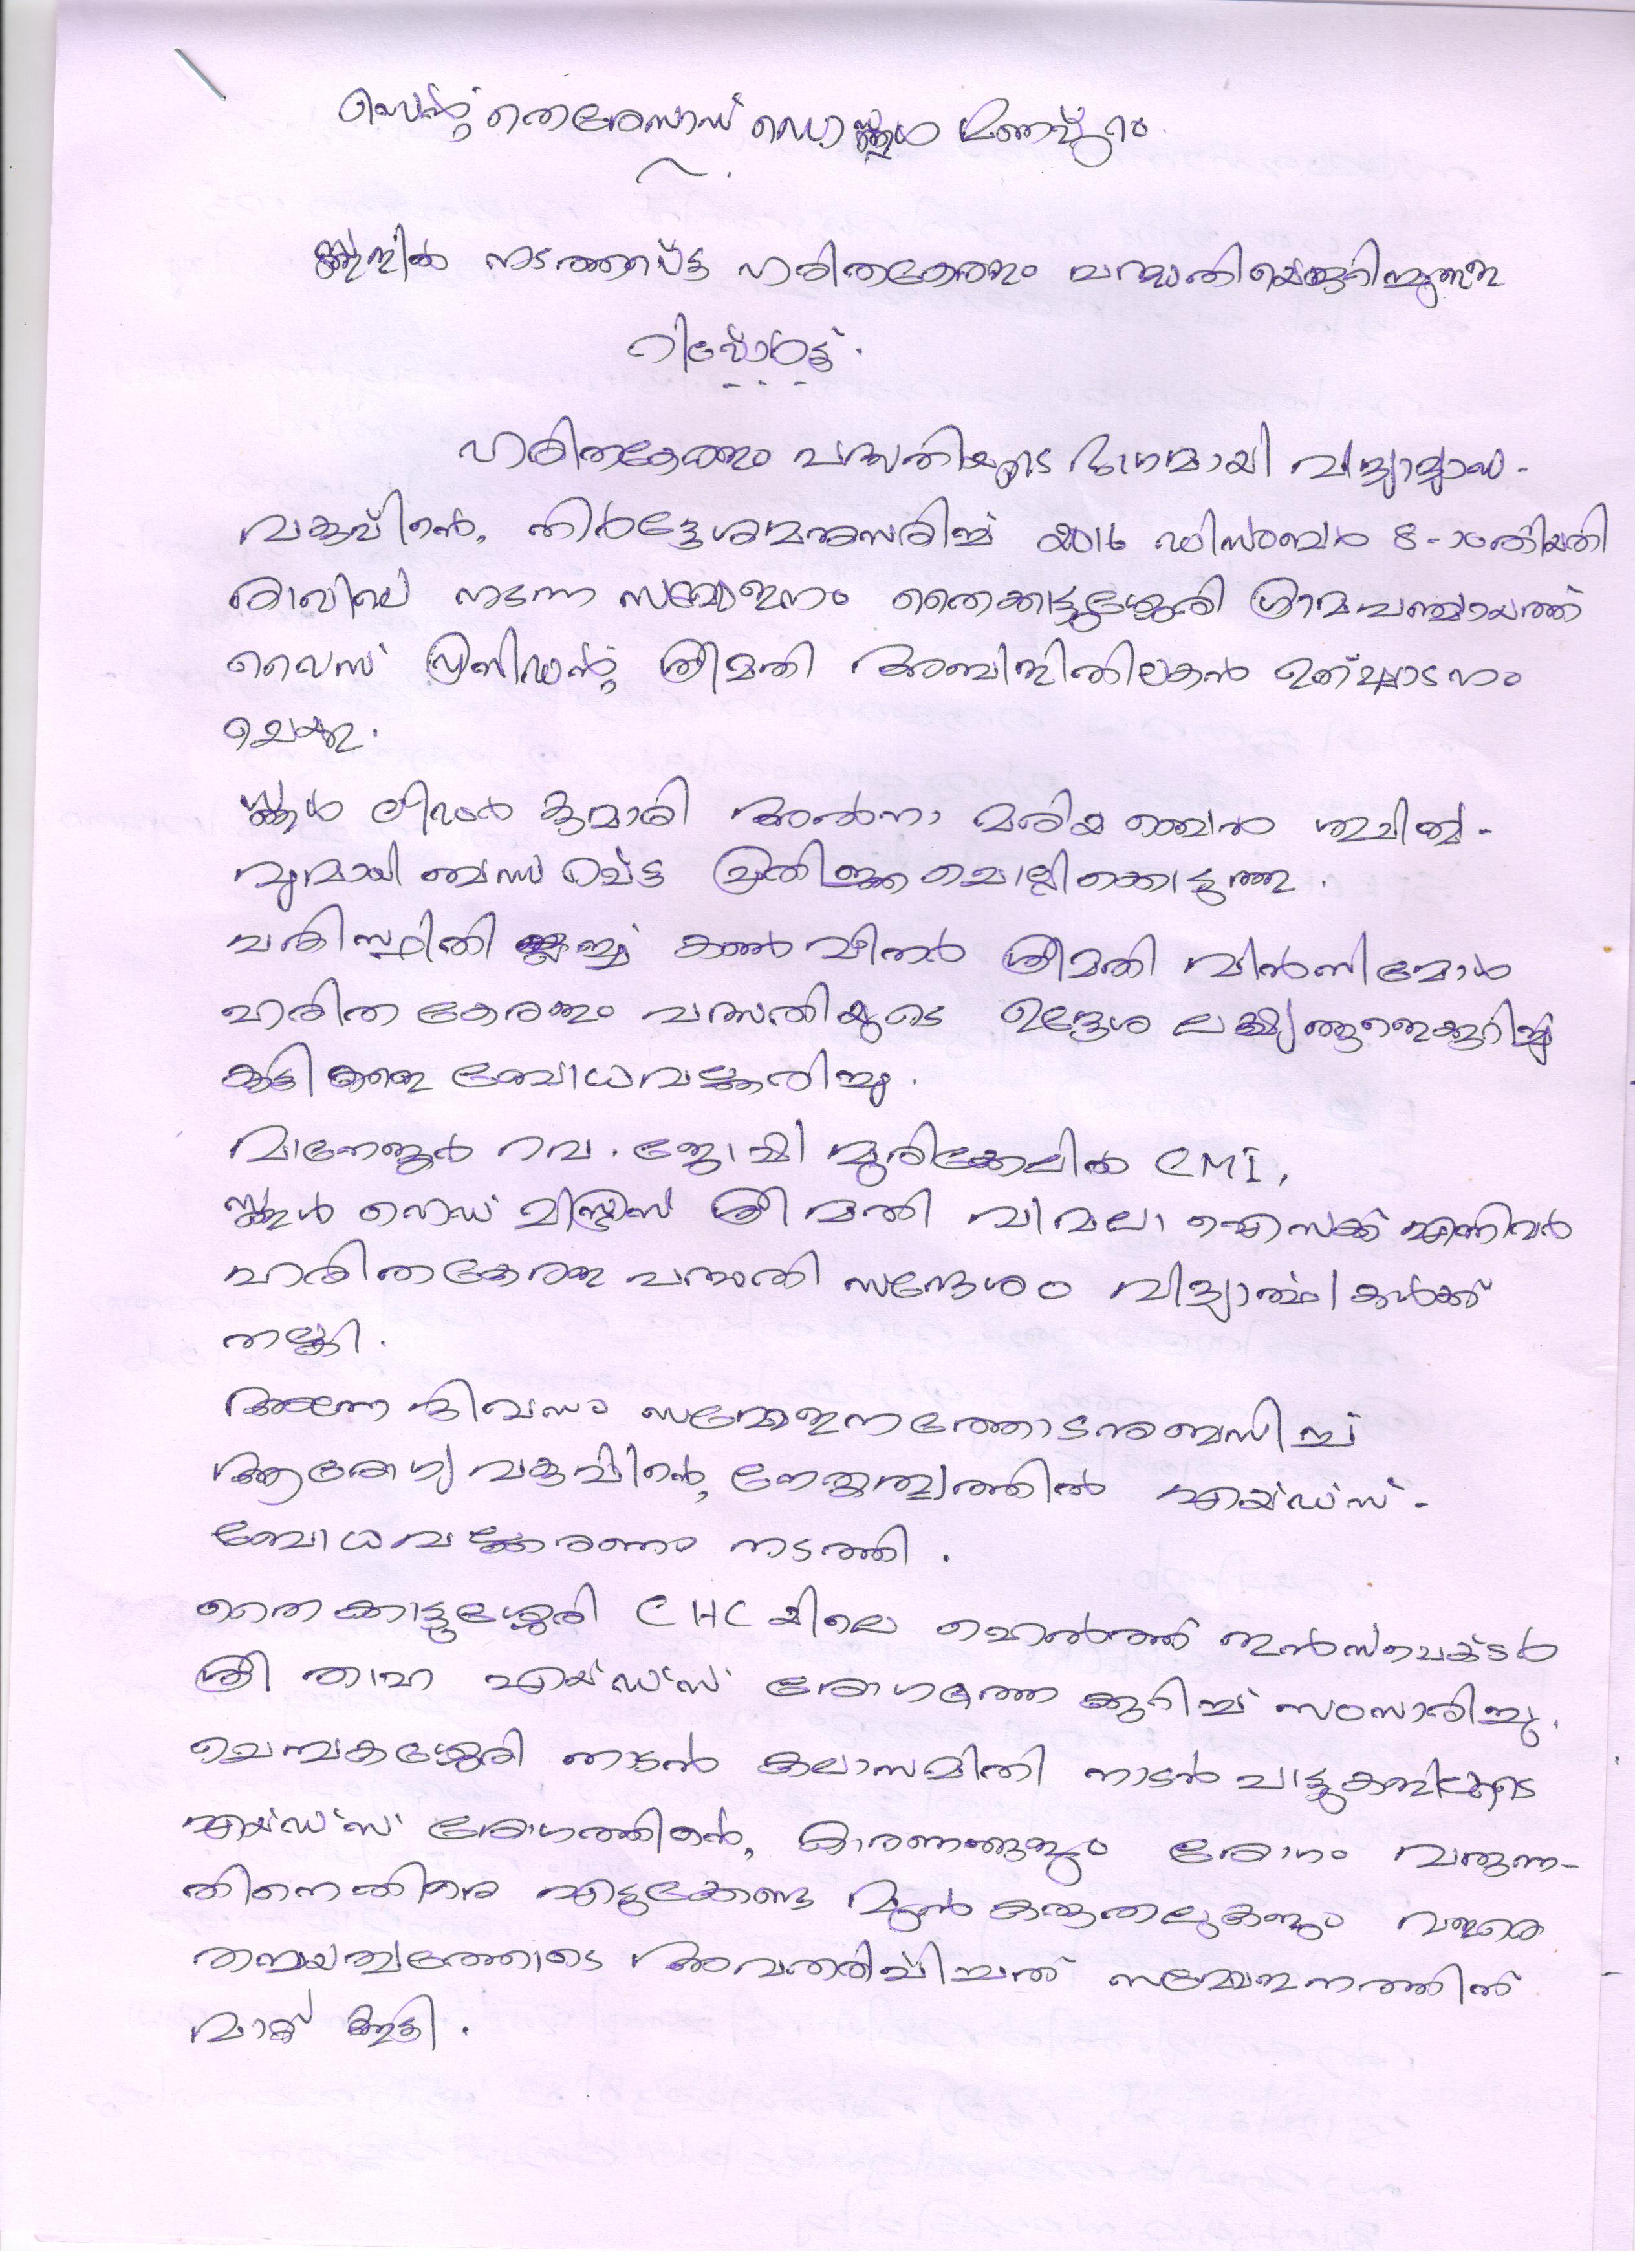 സെന്റ് തെരേസാസ് ഹൈസ്കൂൾ മണപ്പുറം
സ്കൂളിൽ നടത്തപ്പെട്ട ഹരിതകേരളം പദ്ധതിയെക്കുറിച്ചുള്ള
റിപ്പോർട്ട്.
ഹരിതകേരളം പദ്ധതിയുടെ ഭാഗമായി വിദ്യാഭ്യാസ-
വകുപ്പിന്റെ നിർദ്ദേശമനുസരിച്ച് 2016 ഡിസംബർ 8-ാംതീയതി
രാവിലെ നടന്ന സമ്മേളനം തൈക്കാട്ടുശ്ശേരി ഗ്രാമപഞ്ചായത്ത്
വൈസ് പ്രസിഡന്റ് ശ്രീമതി അംബിളിതിലകൻ ഉത്ഘാടനം
ചെയ്തു.
സ്കൂൾ ലീഡർ കുമാരി അൽന മരിയ ബൈജു ശുചിത്വ-
വുമായി ബന്ധപ്പെട്ട പ്രതിജ്ഞ ചൊല്ലിക്കൊടുത്തു.
പരിസ്ഥിതി ക്ലബ്ബ് കൺവീനർ ശ്രീമതി വിൻസിമോൾ
ഹരിത കേരളം പദ്ധതിയുടെ ഉദ്ദേശ ലക്ഷ്യങ്ങളെക്കുറിച്ച്
കുട്ടികളെ ബോധവല്ക്കരിച്ചു.
മാനേജർ റവ. ജോഷി മുരിക്കേലിൽ CMI,
സ്കൂൾ ഹെഡ് മിസ്ട്രസ് ശ്രീമതി വിമലാ ഐസക്ക് എന്നിവർ
ഹരിതകേരള പദ്ധതി സന്ദേശം വിദ്യാർത്ഥികൾക്ക്
നല്കി.
അന്നേ ദിവസം സമ്മേളനത്തോടനുബന്ധിച്ച്
ആരോഗ്യ വകുപ്പിന്റെ നേതൃത്വത്തിൽ എയ്ഡ്സ്-
ബോധവല്ക്കരണം നടത്തി.
തൈക്കാട്ടുശ്ശേരി CHC യിലെ ഹെൽത്ത് ഇൻസ്പെക്ടർ
ശ്രീ താഹ എയ്ഡ്സ് രോഗത്തെ ക്കുറിച്ച് സംസാരിച്ചു.
ചെമ്പകശ്ശേരി നാടൻ കലാസമിതി നാടൻ പാട്ടുകളിലൂടെ
എയ്ഡ്സ് രോഗത്തിന്റെ കാരണങ്ങളും രോഗം വരുന്ന-
തിനെതിരെ എടുക്കേണ്ട മുൻ കരുതലുകളും വളരെ
തന്മയത്വത്തോടെ അവതരിപ്പിച്ചത് സമ്മേളനത്തിന്
മാറ്റ് കൂട്ടി.